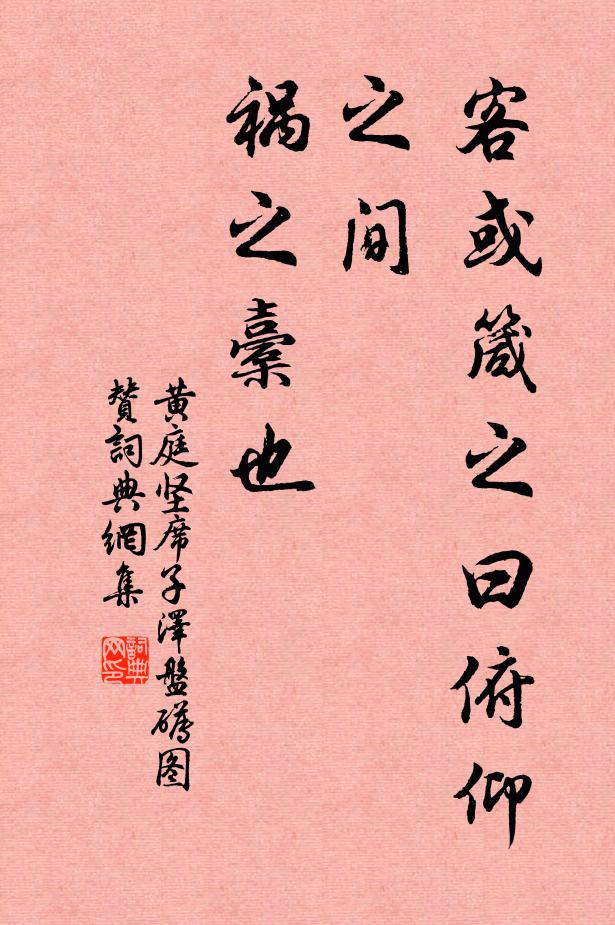 客或箴之曰俯仰
之间
祸之橐也
黄庭坚席子澤盤礴图
赞詞典網集
詞典
网印